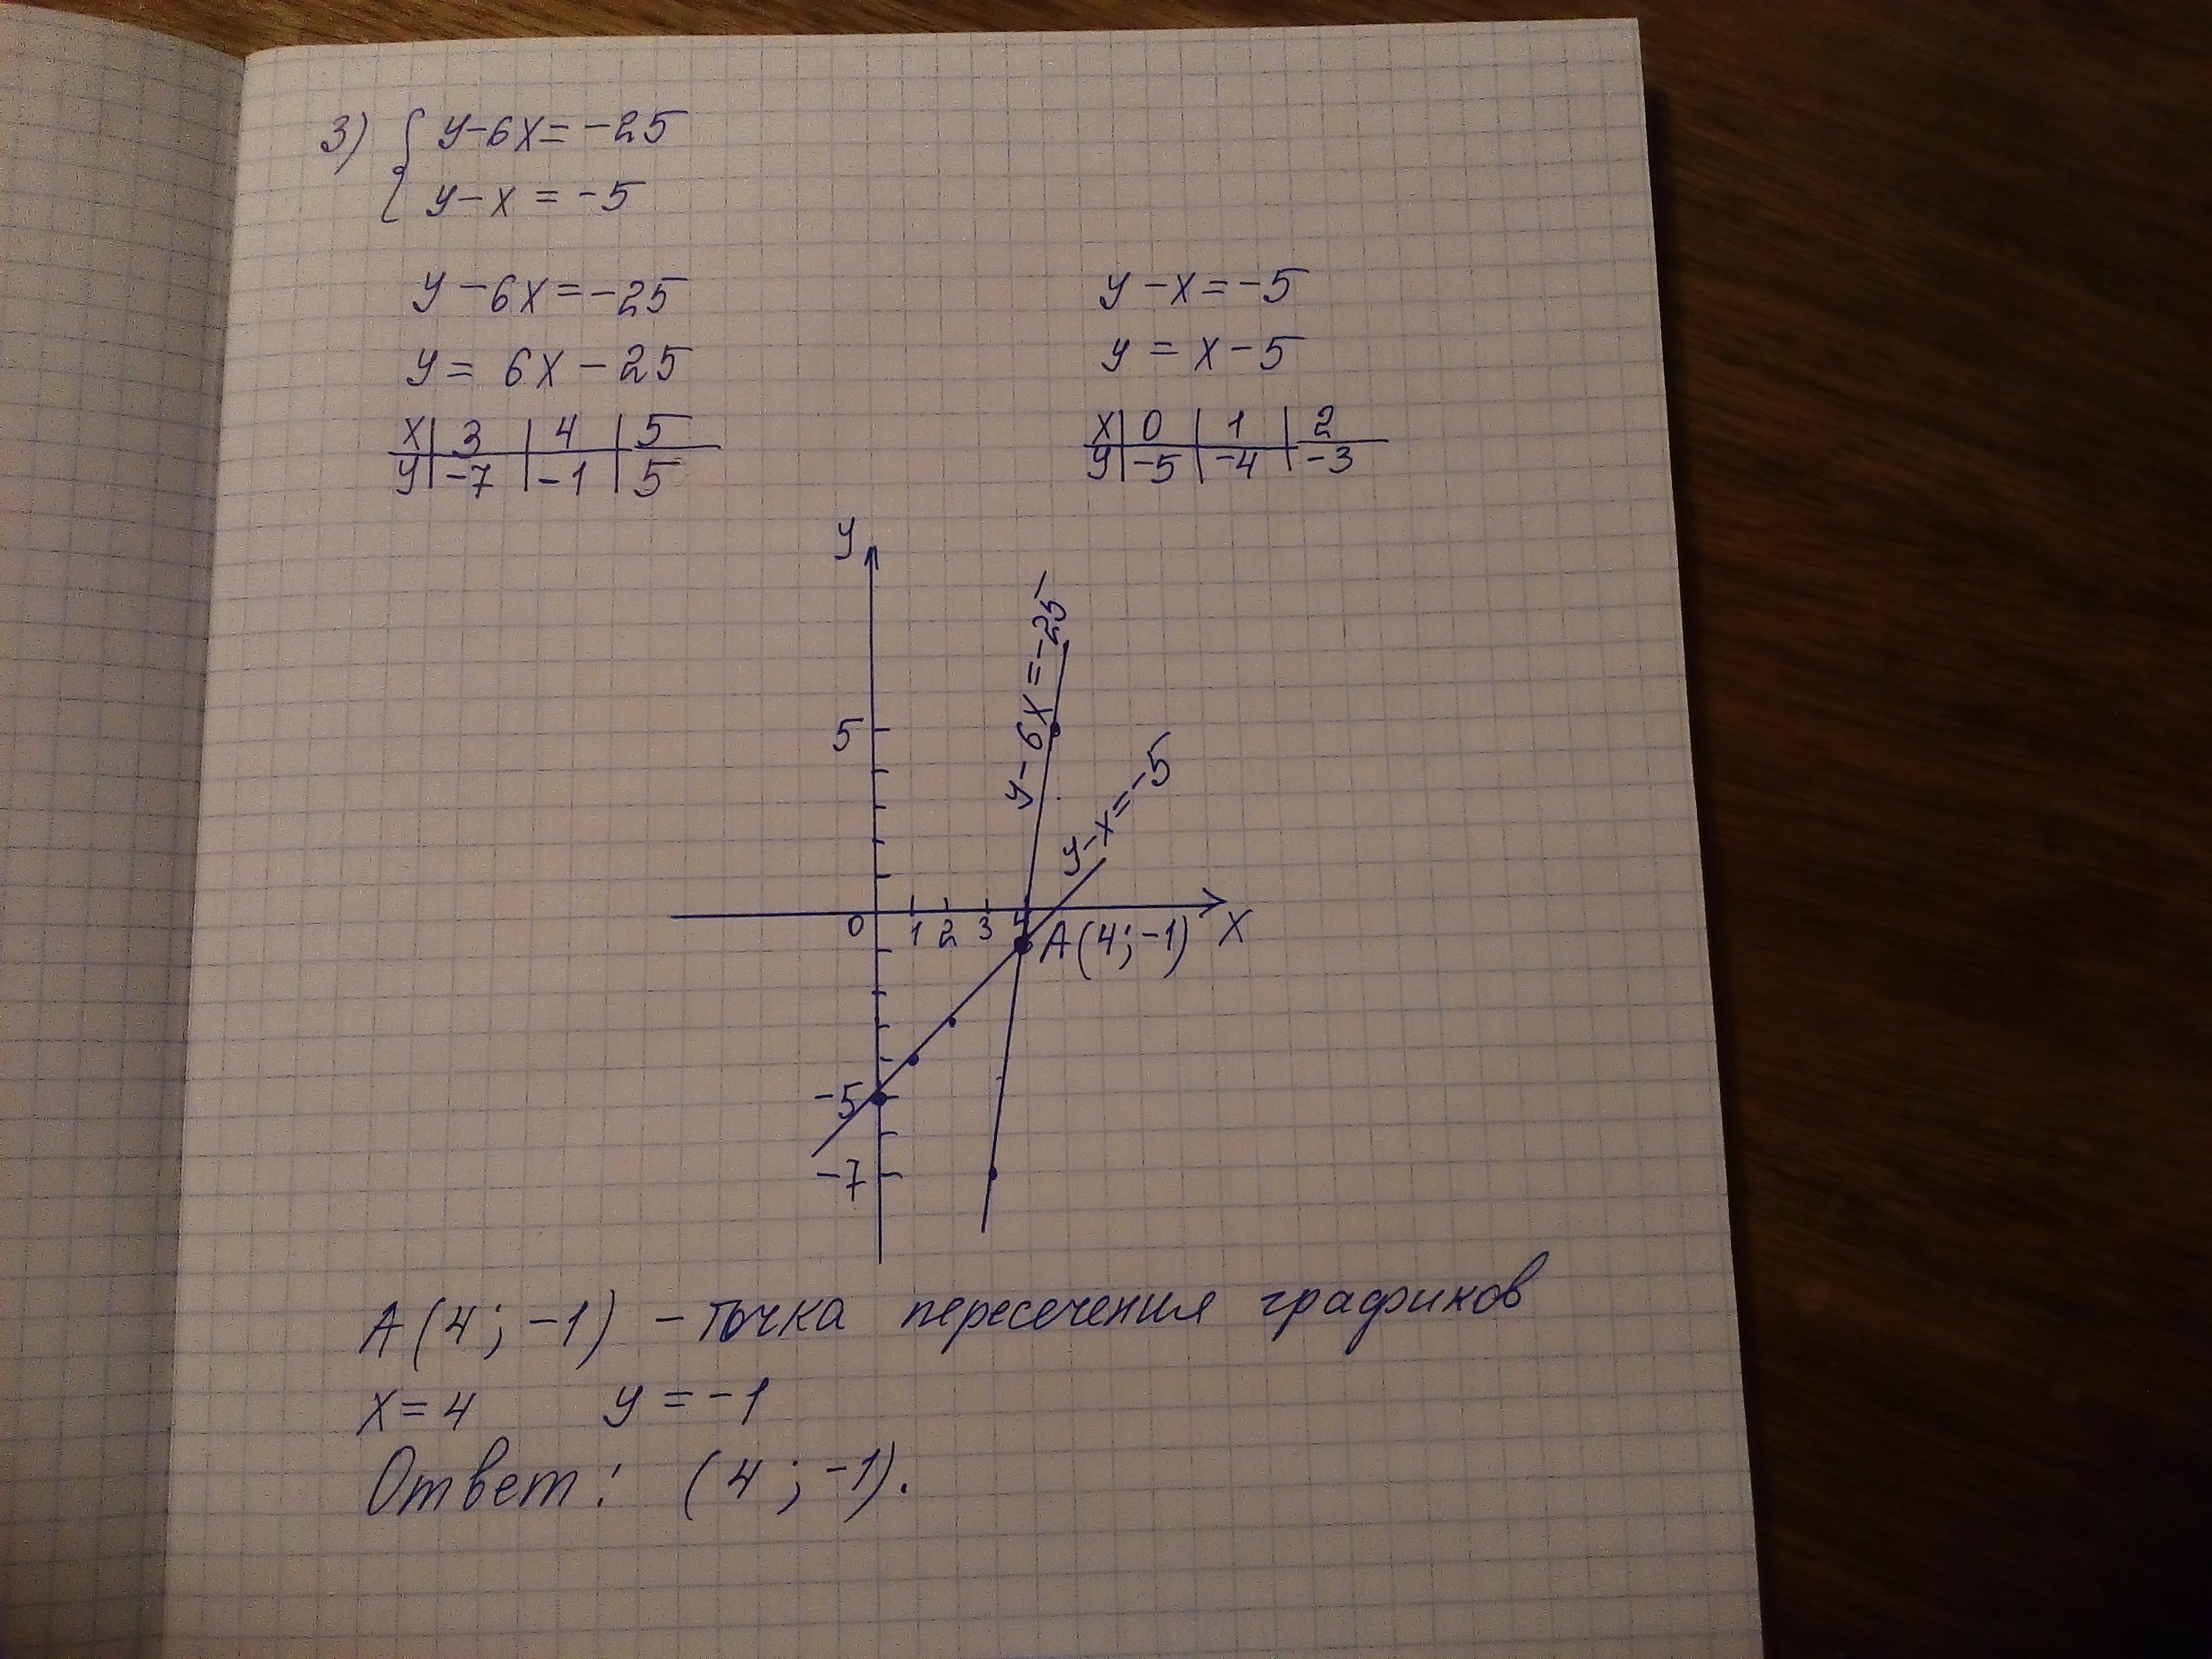 3) { y-6x=-25
y-x=-5
y-6x=-25
y=6x-25
x | 3 | 4 | 5
y | -7 | -1 | 5
y-x=-5
y=x-5
x | 0 | 1 | 2
y | -5 | -4 | -3
y
y-6x=-25
5
y-x=-5
0 1 2 3 4 x
A(4;-1)
-5
-7
A(4;-1) - точка пересечения графиков
x=4 y=-1
Ответ: (4;-1).